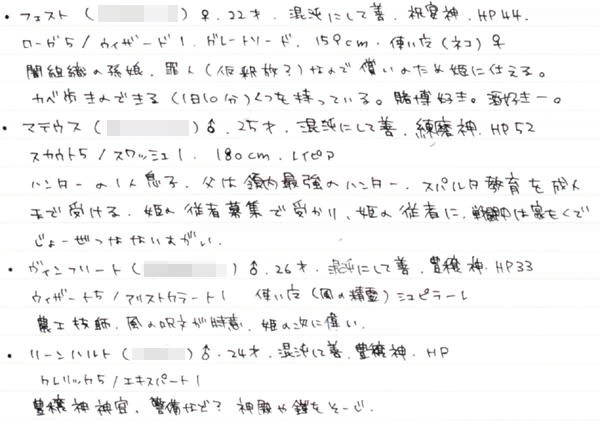 ・フェスト( )♀.22才.混沌にして善.祝宴神.HP44.
ローグ5/ウィザード1.グレートソード.159cm.使い魔(ネコ)♀
闇組織の孫娘.罪人(仮釈放?)なんで償いのため姫に仕える。
カベ歩きのできる(1日10分)くつを持っている。賭博好き。酒好きー。
・マテウス( )♂.25才.混沌にして善.練磨神.HP52
スカウト5/スワッシュ1.180cm.レイピア
ハンターの1人息子.父は領内最強のハンター.スパルタ教育を成人
まで受ける.姫の従者募集で受かり、姫の従者に.戦闘中は寡もくで
じょーぜつはないあがい.
・ヴィンフリート( )♂.26才.混沌にして善.豊穣神.HP33
ウィザード5/アリストクラート1 使い魔(風の精霊)シュピラーレ
農工技師.風の呪文が得意.姫の次に偉い.
・リーンハルト( )♂.24才.混沌して善.豊穣神.HP
クレリック5/エキスパート1
豊穣神神官.警備など?神殿や鎧をそーじ.